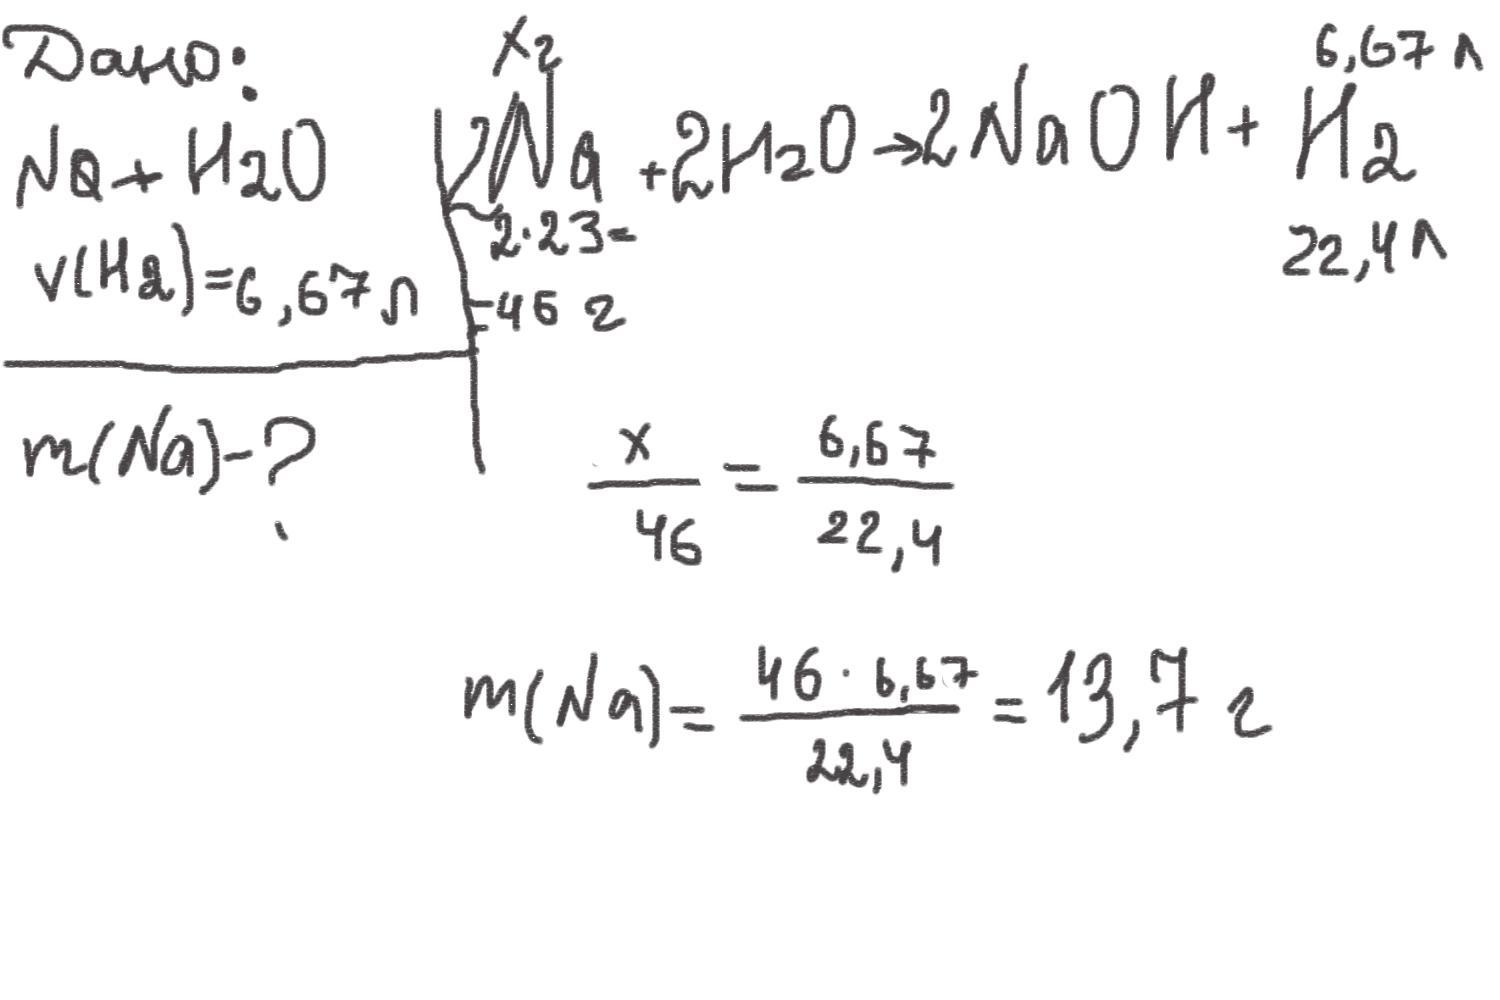 Дано:
Na + H2O
V(H2) = 6,67 л
m(Na) - ?
x г
6,67 л
2Na + 2H2O → 2NaOH + H2
2·23 =
= 46 г
22,4 л
x/46 = 6,67/22,4
m(Na) = 46 · 6,67/22,4 = 13,7 г